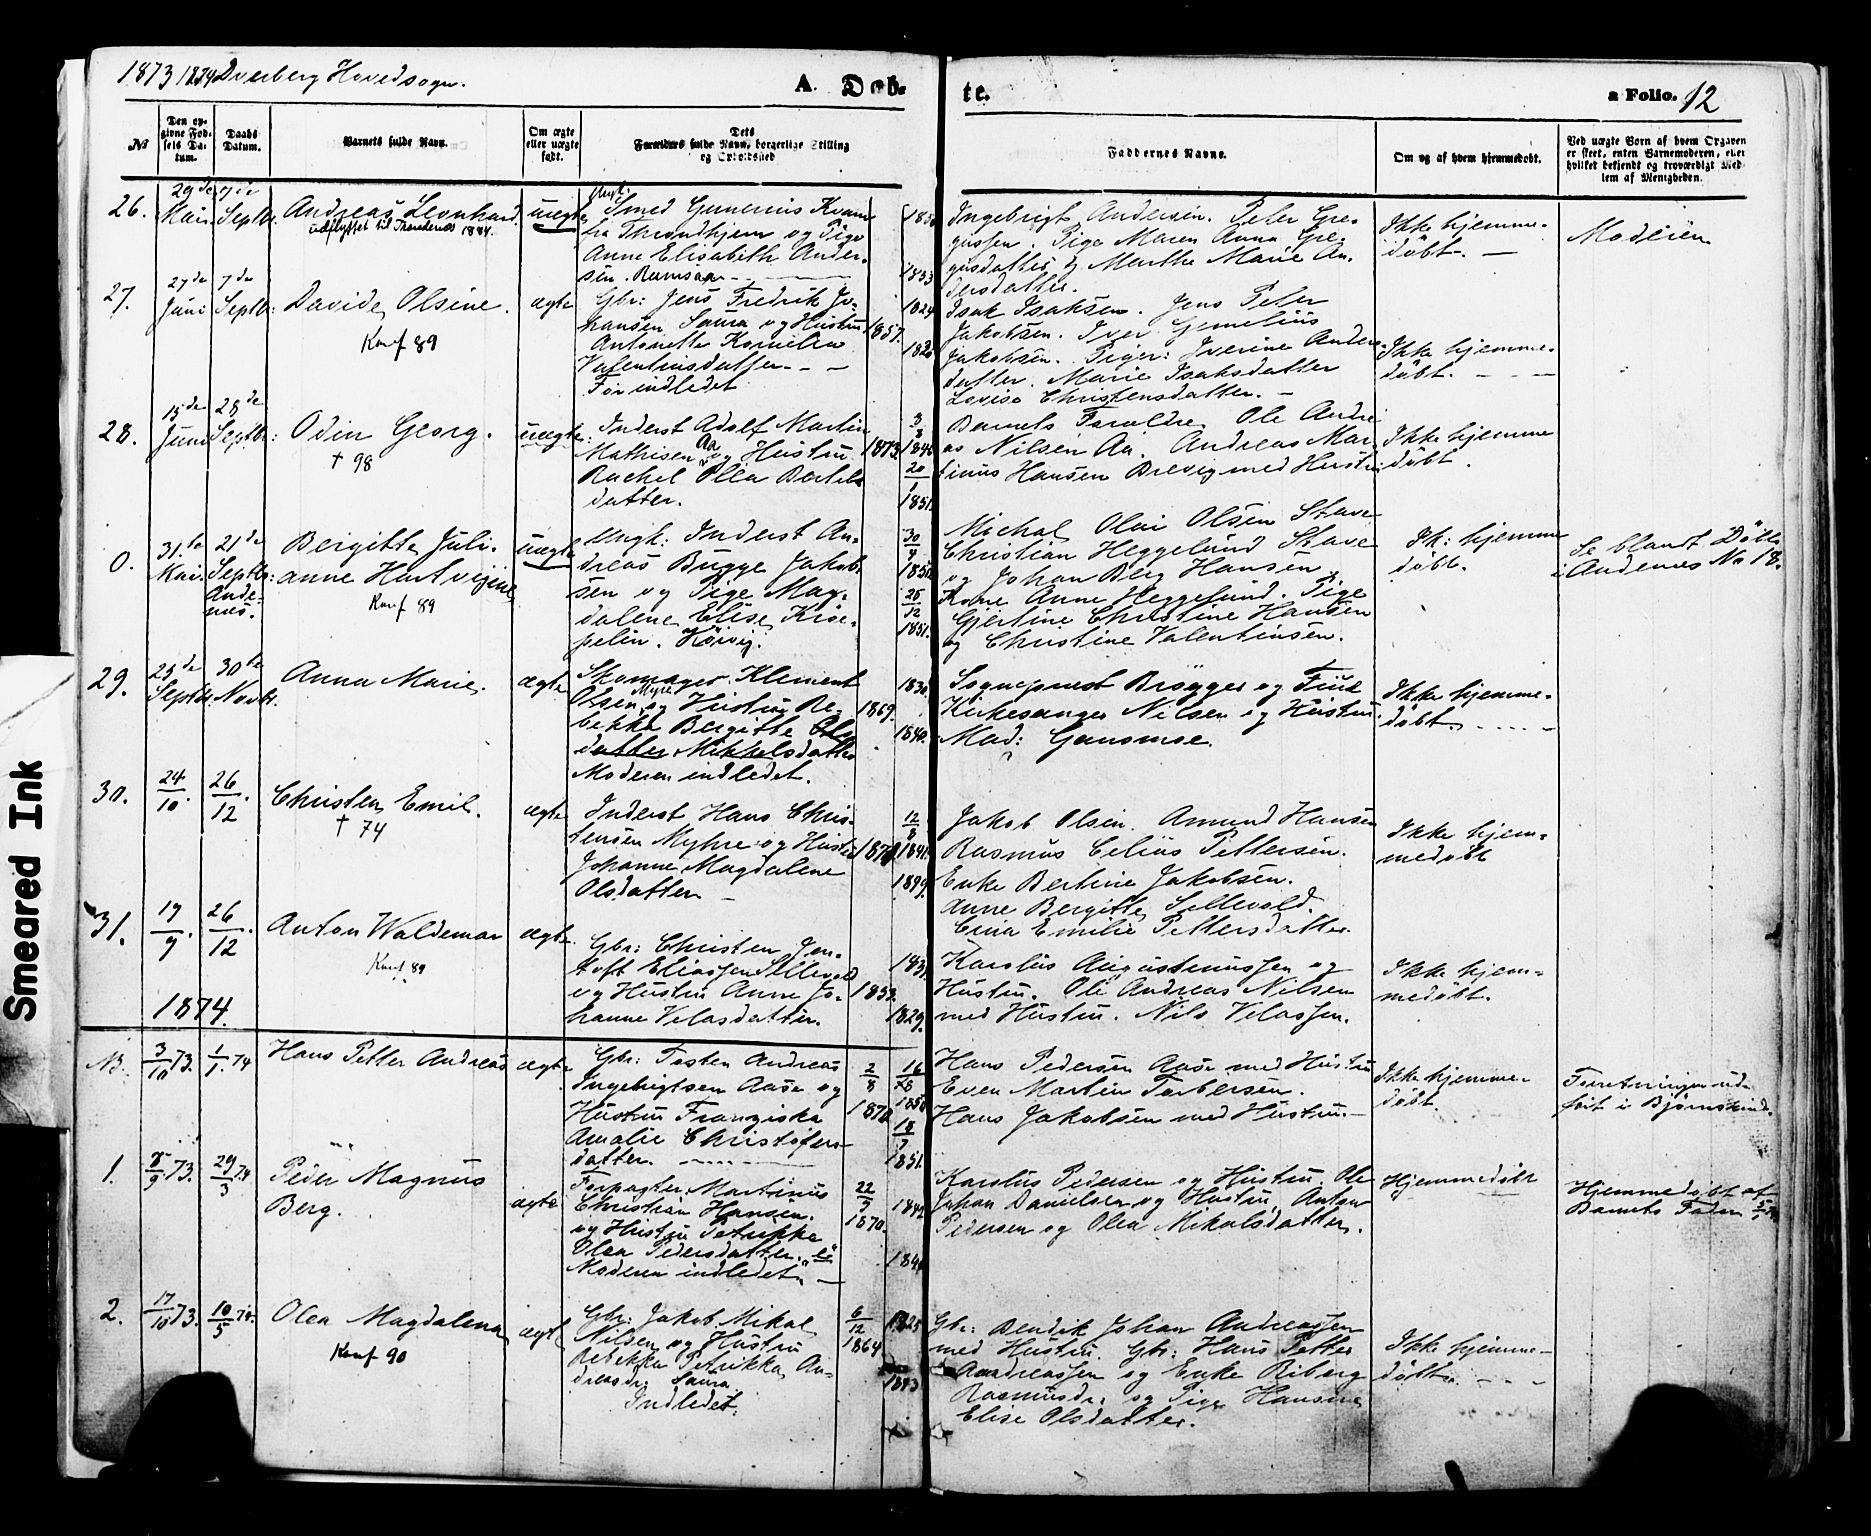 1873 1874 Dverberg Hovedsogn.
A. Døb-
te.
a Folio. 12
No
Den opgivne Fødsels Datum.
Daabs Datum.
Barnets fulde Navn.
Om ægte eller uægte født.
Forældres fulde Navn, borgerlige Stilling og Opholdssted
Faddernes Navne.
Om og af hvem hjemmedøbt.
Ved uægte Børn af hvem Opgaven er skeet, enten Barnemoderen, eller hvilket bekjendt og troværdigt Medlem af Menigheden.
26.
29de Mai
7de Septbr.
Andreas Leonhard.
udflyttet til Throndenes 1884.
uægte
Ungk. Smed Gunerius Kvam
fra Throndhjem og Pige
Anne Elisabeth Ander-
sen. Ramsaa
1850
1853
Ingebrigt Andersen. Peter Gre-
gussen. Pige Maren Anna Gre-
gusdatter og Marthe Marie An-
dersdatter.
Ikke hjemme-
døbt. —
Moderen
27.
27de Juni
7de Septbr:
Davida Olsine.
Konf 89
ægte
Gbr: Jens Fredrik Jo-
hansen Saura og Hustru
Antonette Kornelia
Valentinsdatter - -
Før indledet
1857.
1824
1820
Isak Isaksen. Jens Peter
Jakobsen. Iver Cornelius
Jakobsen. Piger: Iverine Anders-
datter. Marie Isaksdatter
Lovisa Christensdatter. -
Ikke hjemme-
døbt. - - -
28.
15de Juni
28de Septbr:
Odin Georg.
† 98
uægte:
Inderst Adolf Martin
Mathisen Aa og Hustru
Rachel Olea Bertels
datter.
1873
3/8 1846
20/1 1851.
Barnets Forældre. Ole Andre
as Nilsen Aa. Andreas Mar-
tinus Hansen Brevig med Hustru
Ikke hjemme
døbt.
0.
31te Mai.
21de Septbr:
Ande-
nes.
Bergitte Juli-
anne Hartvigine
Konf 89
uægte
Ungk: Inderst An-
dreas Bugge Jakob-
sen og Pige Mag-
dalene Elise Krøe-
pelin. Köivig.
30/4 1850
25/12 1851.
Michal Olai Olsen Stave
Christian Heggelund Stave
og Johan Berg Hansen
Kone Anne Heggelund. Pige
Gjertine Christine Hansen
og Christine Valentinsen.
Ik: hjemme
døbt.
Se blandt Döbte
i Andenes No 18.
29.
25de Septbr
30te Novbr.
Anna Marie.
ægte
Skomager Klement
Olsen Myre og Hustru Re-
bekka Bergitte Ols
datter Mikkelsdatter
Moderen indledet.
1869.
1830
1840.
Sognepræst Brögger og Frue
Kirkesanger Nilsen og Hustru.
Mad: Gausmoe.
Ikke hjemme-
døbt. - - - -
30.
24/10.
26/12.
Christen Emil.
† 74
ægte
Inderst Hans Chris-
tensen Myhre og Hustru
Johanne Magdalene
Olsdatter —
12/8 1841.
Jakob Olsen. Amund Hansen
Rasmus Celius Pettersen.
Enke Bertine Jakobsen.
Anne Bergitte Sellevold.
Emilie Pettersdatter.
Ikke hjem-
medøbt
31.
19/9.
26/12
Anton Waldemar
Konf 89
ægte.
Gbr: Christen Jen-
toft Eliassen Sellevold
og Hustru Anne Jo-
hanne Velasdatter.
1853.
1831
1829.
Karolus Augustinussen og
Hustru. Ole Andreas Nilsen
med Hustru. Nils Velassen.
Ikke hjem-
medøbt.
1874.
NB.
3/10 73.
1/1. 74
Hans Petter Andreas
ægte
Gbr: Testen Andreas
Ingebrigtsen Aase og
Hustru Franziska
Amalie Christofers-
datter.
2/8 1870
1850
18/7 1851.
Hans Pedersen Aase med Hustru
Even Martin Torbersen.
Hans Jakobsen med Hustru.
Ikke hjemme-
døbt.
Forretningen ud-
ført i Bjørnskind.
1.
5/9 73.
29/3 74
Peder Magnus
Berg.
ægte
Forpagter Martinus
Christian Hansen.
og Hustru Petrikke
Olea Pedersdatter.
Moderen indledet. —
1870.
1842
Karolus Pedersen og Hustru. Ole
Johan Danielsen og Hustru. Anton
Pedersen og Olea Mikalsdatter.
Hjemmedøbt
Hjemmedøbt af
Barnets Fader
2.
17/10 73.
10/5 74.
Olea Magdalena
Konf 90
ægte
Gbr: Jakob Mikal
Nilsen og Hustru
Rebekka Petrikka An-
dreasdr. Saura
Indledet.
6/12 1864
1825
1843
Gbr: Bendik Johan Andreassen
med Hustru. Gbr: Hans Petter
Andreassen og Enke Riberg
Rasmusdr. og Pige Hansine
Elise Olsdatter.
Ikke hjemme-
døbt. - - -
Smeared Ink